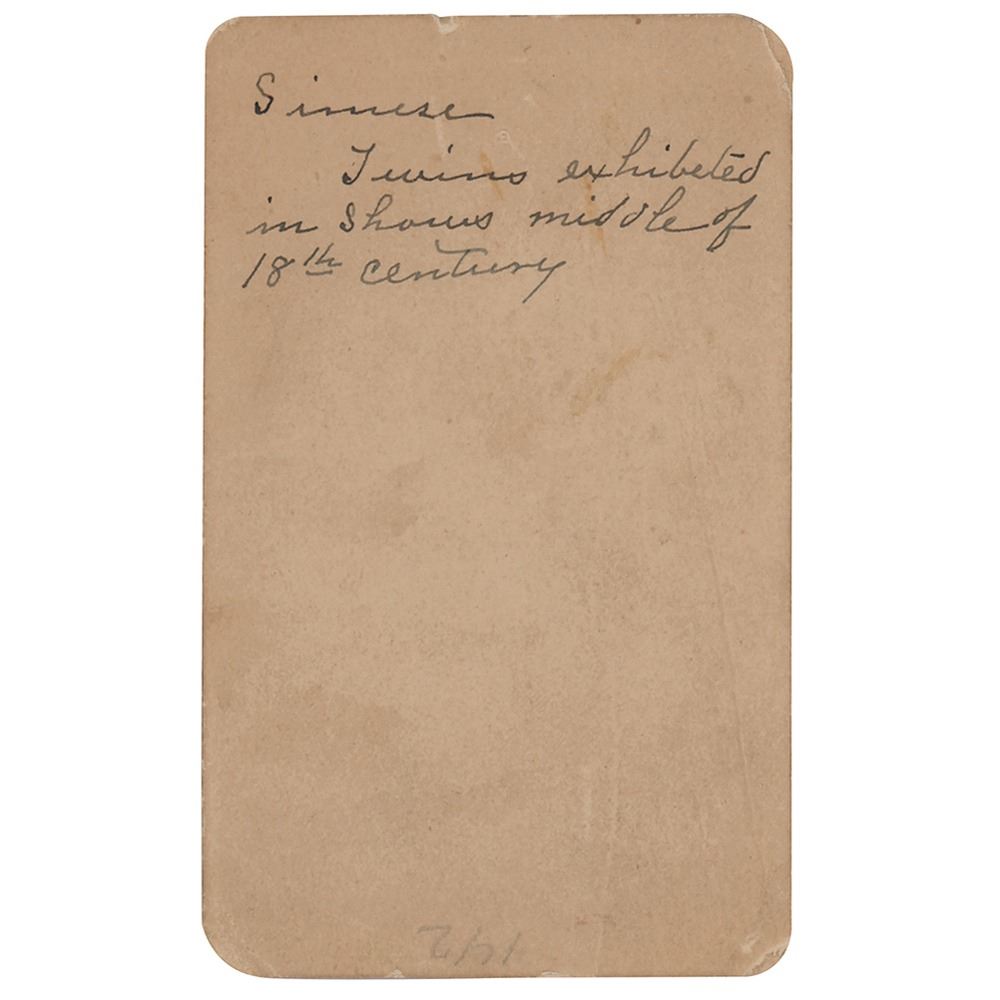 Simese
Twins exhibeted
in Shows middle of
18th century